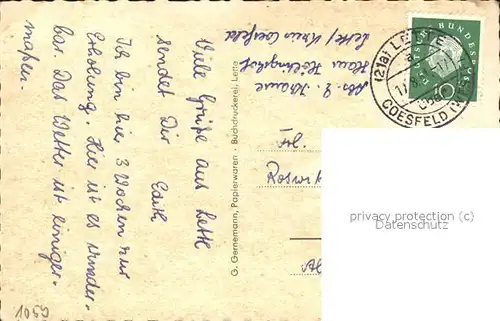 Viele Grüße aus Lette
sendet Dir Edith
Ich bin hier 3 Wochen zur
Erholung. Hier ist es wunder-
bar. Das Wetter ist einiger-
maßen.
Abs. E. Krause
Haus
Lette/Kreis Coesfeld
G. Gernemann, Papierwaren - Buchdruckerei, Lette
(21a) LETTE
COESFELD (WESTF)
DEUTSCHE BUNDESPOST
10
Fr.
Roswi
privacy protection (c)
Datenschutz
1059